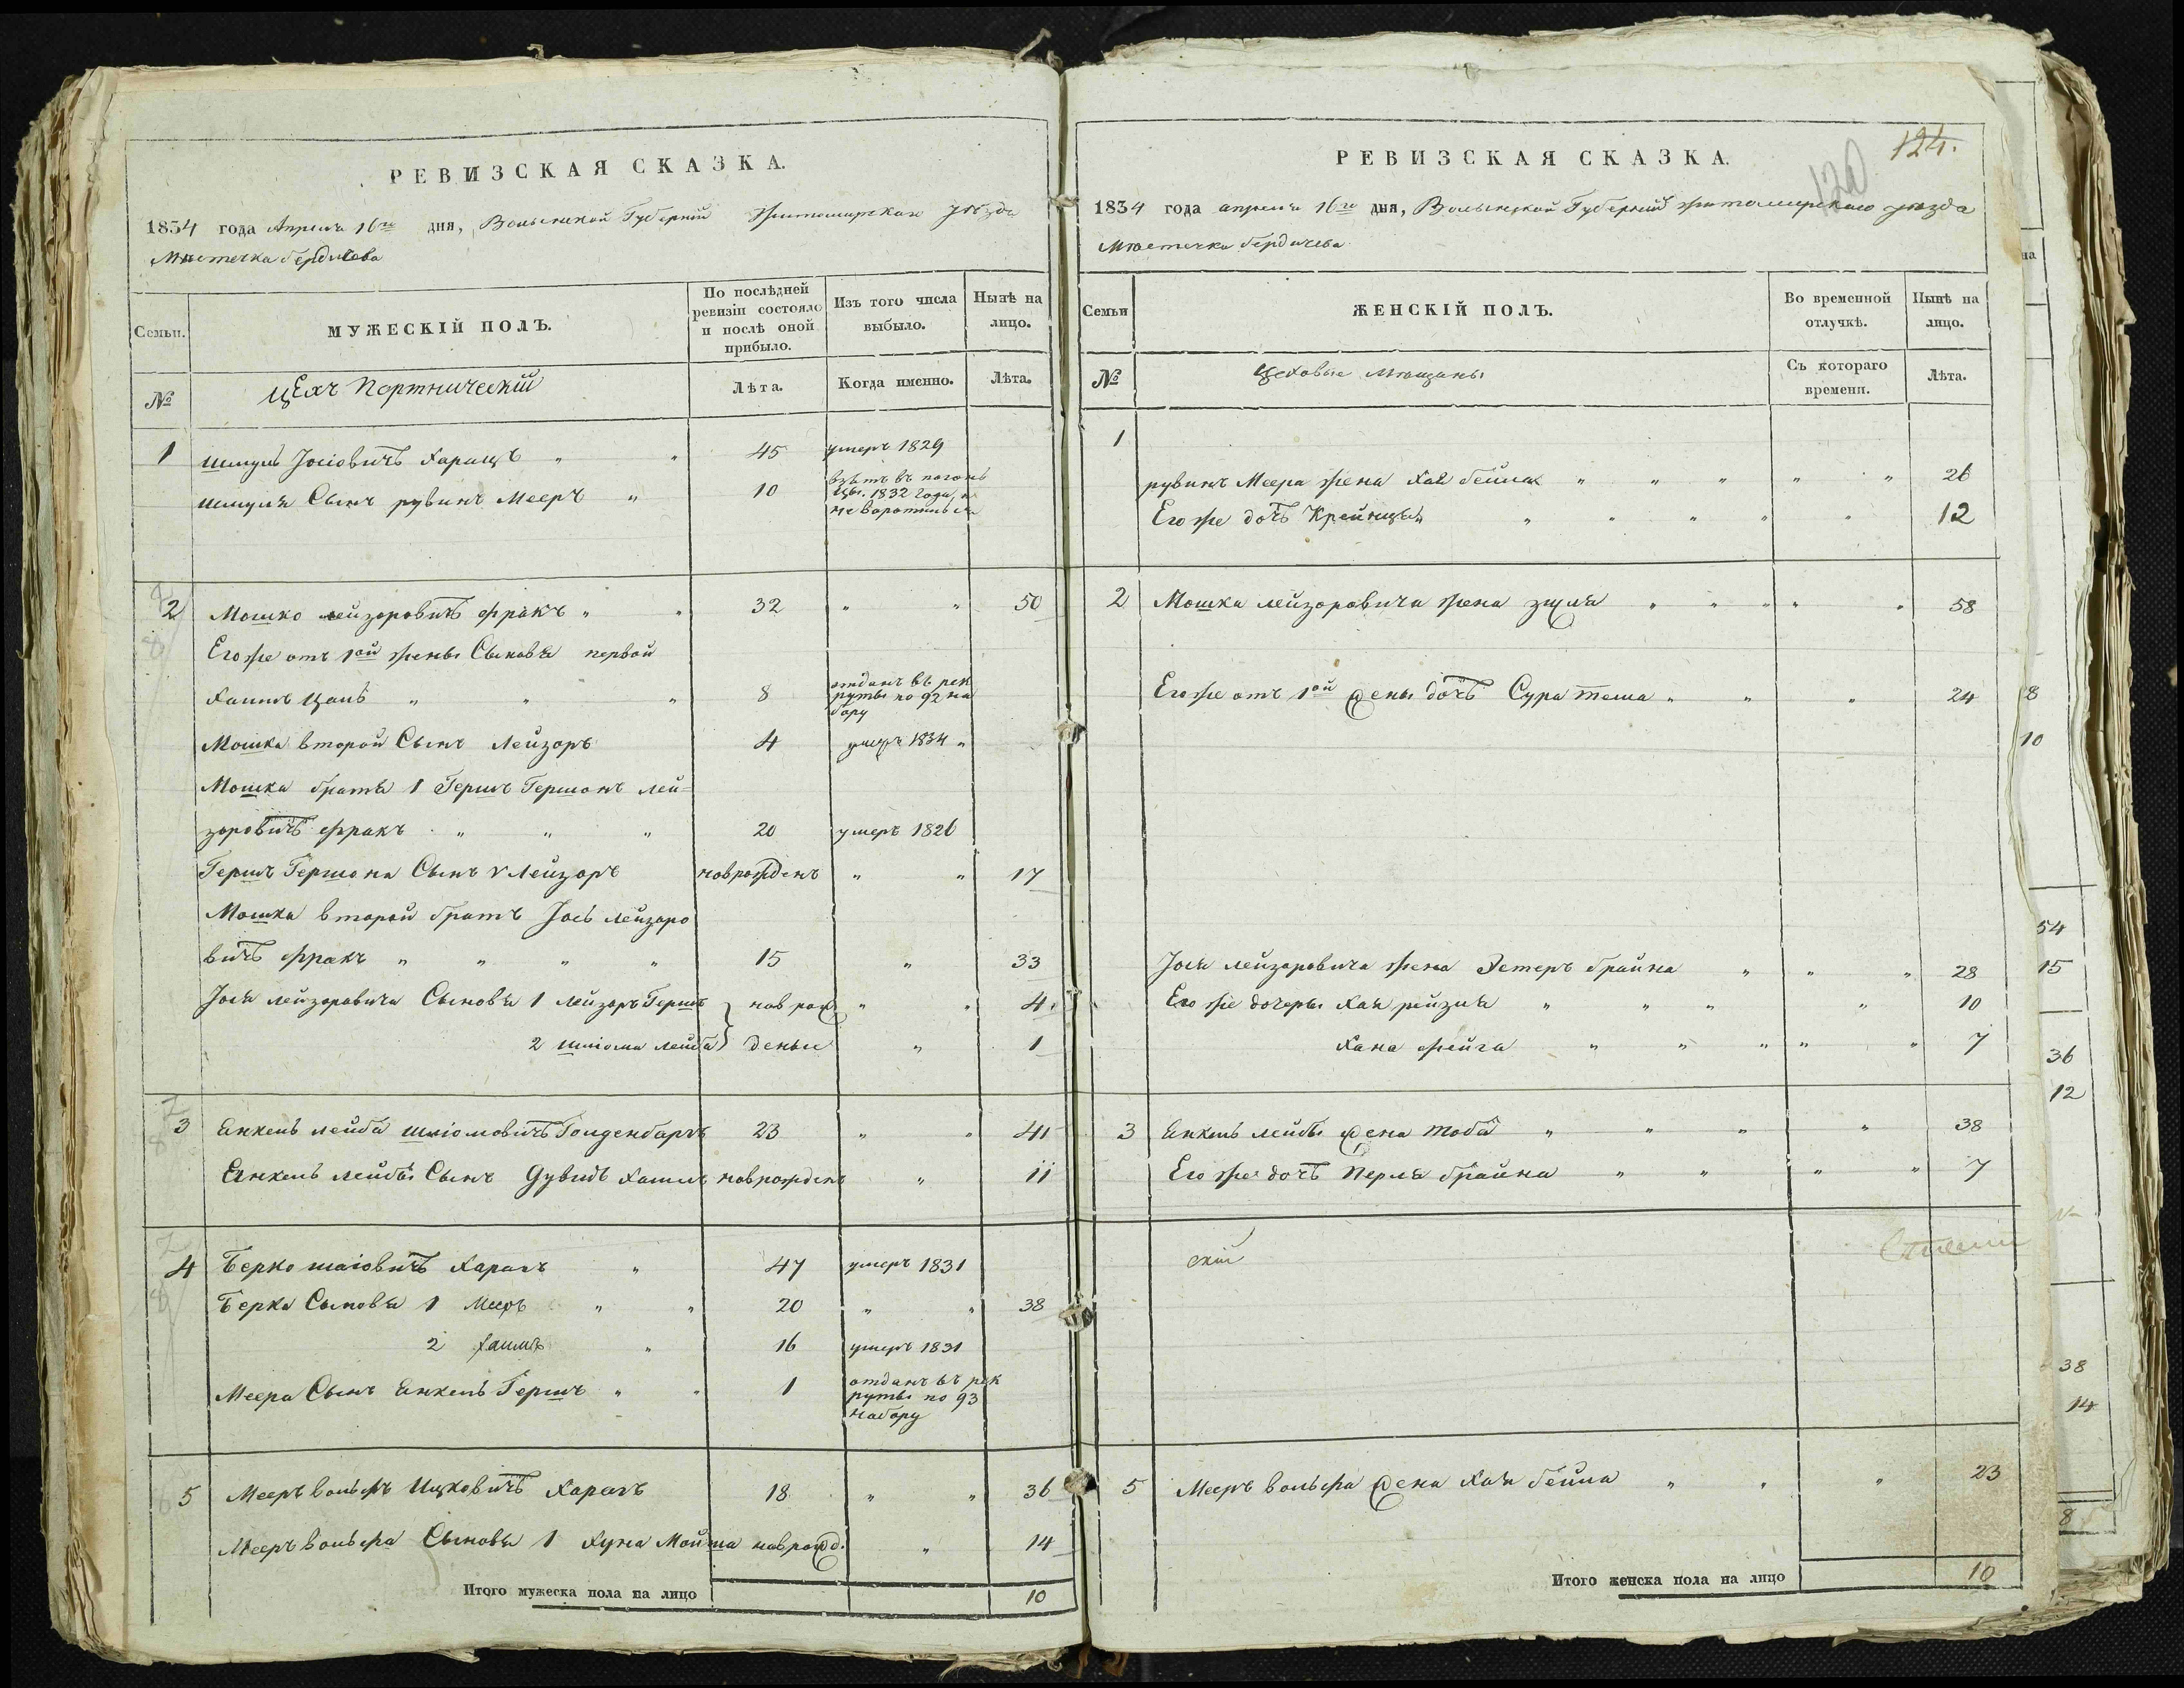 РЕВИЗСКАЯ СКАЗКА.
1834 года Апреля 16го дня, Волынской Губерніи Житомирскаго уѣзда
Мѣстечка Бердичева
Семьи.
МУЖЕСКІЙ ПОЛЪ.
По послѣдней ревизіи состояло и послѣ оной прибыло.
Изъ того числа выбыло.
Нынѣ на лицо.
№
Цехъ Портническій
Лѣта.
Когда именно.
Лѣта.
1 Шмуль Іосіовичъ Харацъ " " 45 умеръ 1829
Шмуля Сынъ рувинъ Мееръ " 10 взятъ въ погонь
1832 года, и
не воротился
2 Мошко лейзоровичъ фракъ " " 32 " " 50
Егоже отъ 1ой жены Сыновя первой
Хаимъ " " " 8 отданъ въ рек
руты по 92 на
бору
Мошка второй Сынъ Лейзоръ 4 умеръ 1834 "
Мошка братя 1 Гершъ Гершонъ лей-
зоровичъ фракъ " " " 20 умеръ 1826
Гершъ Гершона Сынъ Лейзоръ новрожденъ " " 17
Мошка второй братъ Іось лейзоро
вичъ фракъ " " " " 15 " 33
Іося лейзоровича Сыновя 1 лейзоръ Гершъ } нов рож " " 4
2 Шліома лейба } деные " 1
3 Янкель лейба Шліомовичъ Голденбаръ 23 " " 41
Янкель лейбы Сынъ Дувидъ Хаимъ новрожденъ " 11
4 Берко шаіовичъ Харачъ " 47 умеръ 1831
Берка Сыновя 1 Мееръ " " 20 " " 38
2 Хаимъ " 16 умеръ 1831
Меера Сынъ Янкель Гершъ " " 1 отданъ въ рек
руты по 93
набору
5 Мееръ вольфъ Ицковичъ Харачъ 18 " " 36
Мееръ вольфа Сыновя 1 Хуна Мойша новрожд. " 14
Итого мужеска пола на лицо 10
124.
120
РЕВИЗСКАЯ СКАЗКА.
1834 года апреля 16го дня, Волынской Губерніи житомирскаго уезда
Мѣстечка бердичева
Семьи
ЖЕНСКІЙ ПОЛЪ.
Во временной отлучкѣ.
Нынѣ на лицо.
№
Цеховые Мѣщаны
Съ котораго времени.
Лѣта.
1
рувинъ Меера жена Хая бейла " " " " " 26
Егоже дочъ Крейнця " " " " " 12
2 Мошка лейзоровича жена " " " " " 58
Егоже отъ 1ой жены дочъ Сура тема " " " 24
Іося лейзоровича жена Эстеръ брайна " " " 28
Его же дочеры Хая рейзля " " " " 10
Хана фейга " " " " " 7
3 Янкель лейбы жена тоба " " " " 38
Его же дочъ Перля брайна " " " " 7
скій
5 Мееръ вольфа жена Хая бейла " " " 23
Итого женска пола на лицо 10
на
8
10
54
15
36
12
38
14
8